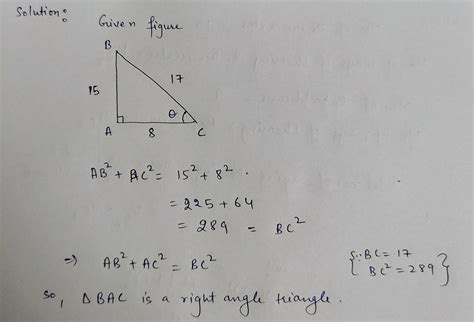 Solution:
Given figure
B
15
17
θ
A
8
C
AB² + AC² = 15² + 8²
= 225 + 64
= 289 = BC²
⇒ AB² + AC² = BC²
{∵ BC = 17
BC² = 289}
So, Δ BAC is a right angle triangle.